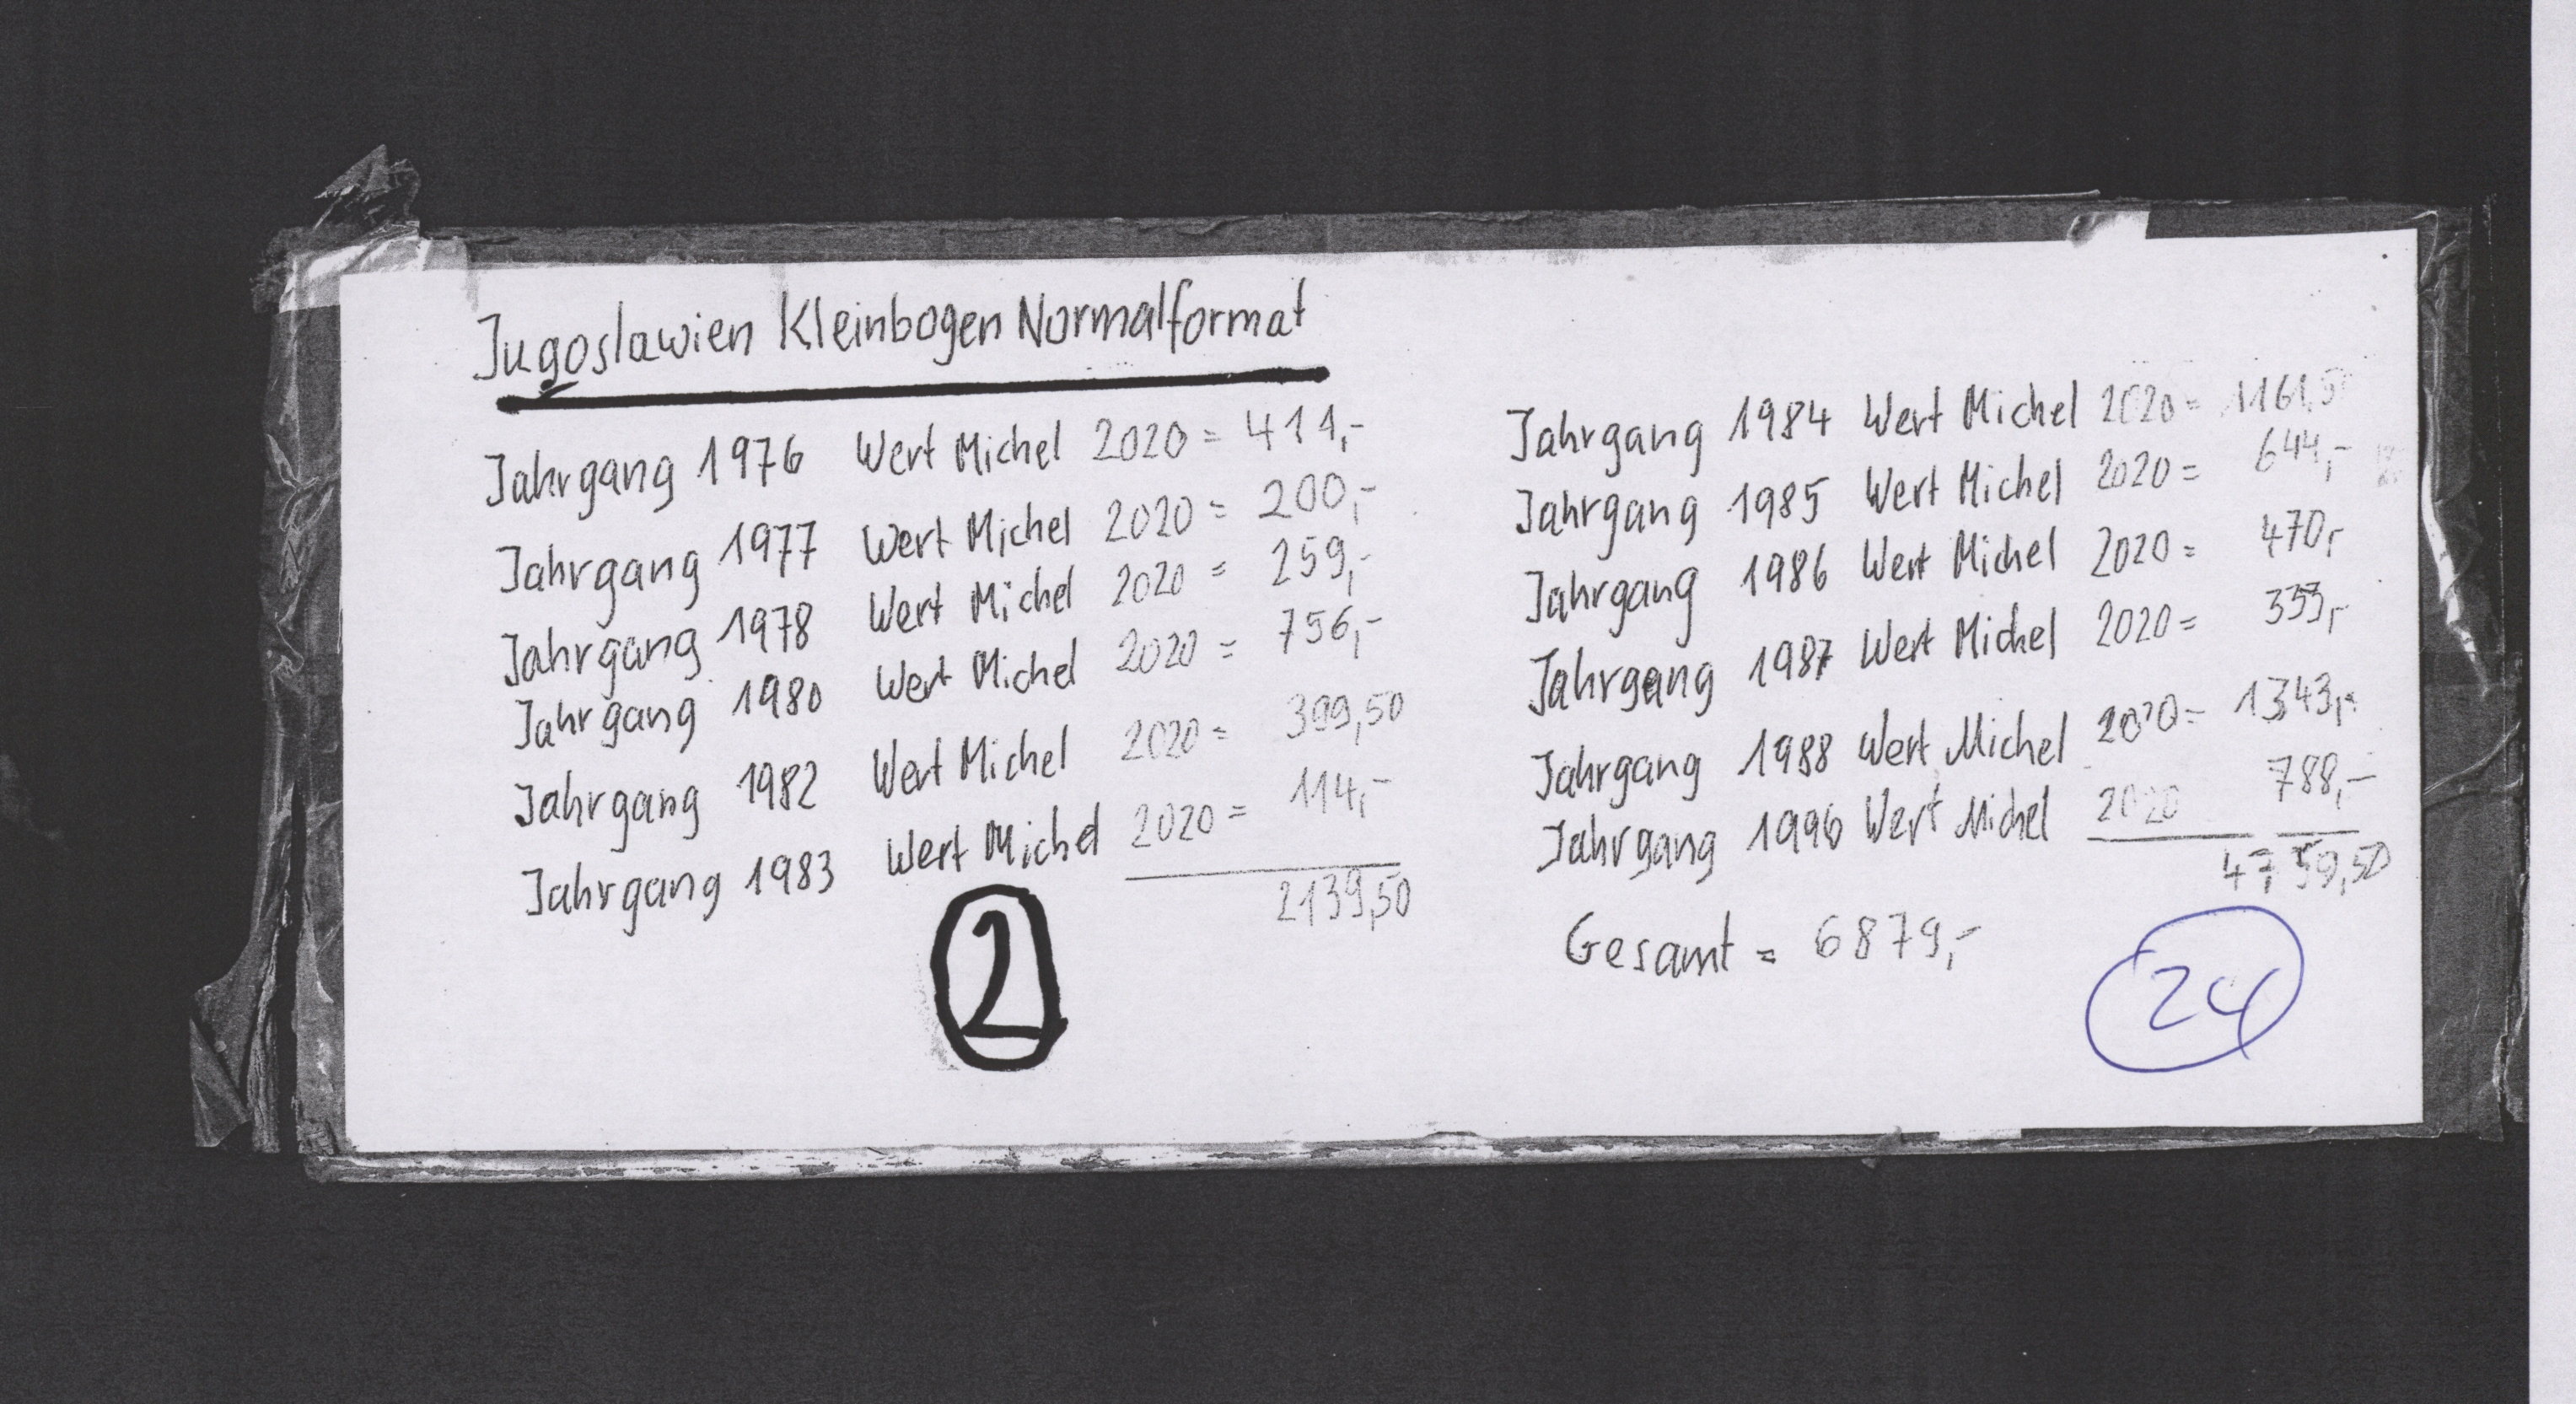 Jugoslawien Kleinbogen Normalformat
Jahrgang 1976 Wert Michel 2020 = 411,-
Jahrgang 1977 Wert Michel 2020 = 200,-
Jahrgang 1978 Wert Michel 2020 = 259,-
Jahrgang 1980 Wert Michel 2020 = 756,-
Jahrgang 1982 Wert Michel 2020 = 399,50
Jahrgang 1983 Wert Michel 2020 = 114,-
2139,50
2
Jahrgang 1984 Wert Michel 2020 = 1161,5
Jahrgang 1985 Wert Michel 2020 = 644,-
Jahrgang 1986 Wert Michel 2020 = 470,-
Jahrgang 1987 Wert Michel 2020 = 333,-
Jahrgang 1988 Wert Michel 2020 = 1343,-
Jahrgang 1990 Wert Michel 2020 788,-
4739,50
Gesamt = 6879,-
24